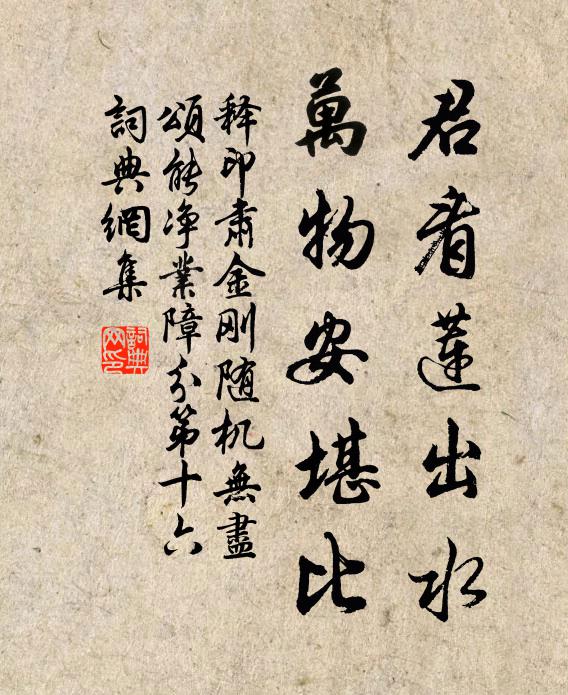 君看蓮出水
萬物安堪比
釋印肅金刚随机無盡
頌能净業障分第十六
詞典網集
詞典网印